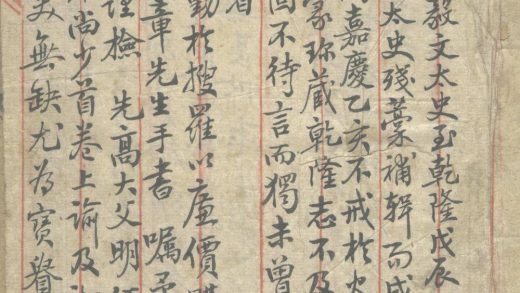 毅文太史至乾隆戊辰
太史殘藁補輯而成
嘉慶乙亥不戒於火
家珍藏乾隆志不及
固不待言而獨未曾
者
勤於搜羅以廉價購
輩先生手書 囑予
理檢 先高大父明經
尚少首卷上諭及
美無缺尤為寶眷